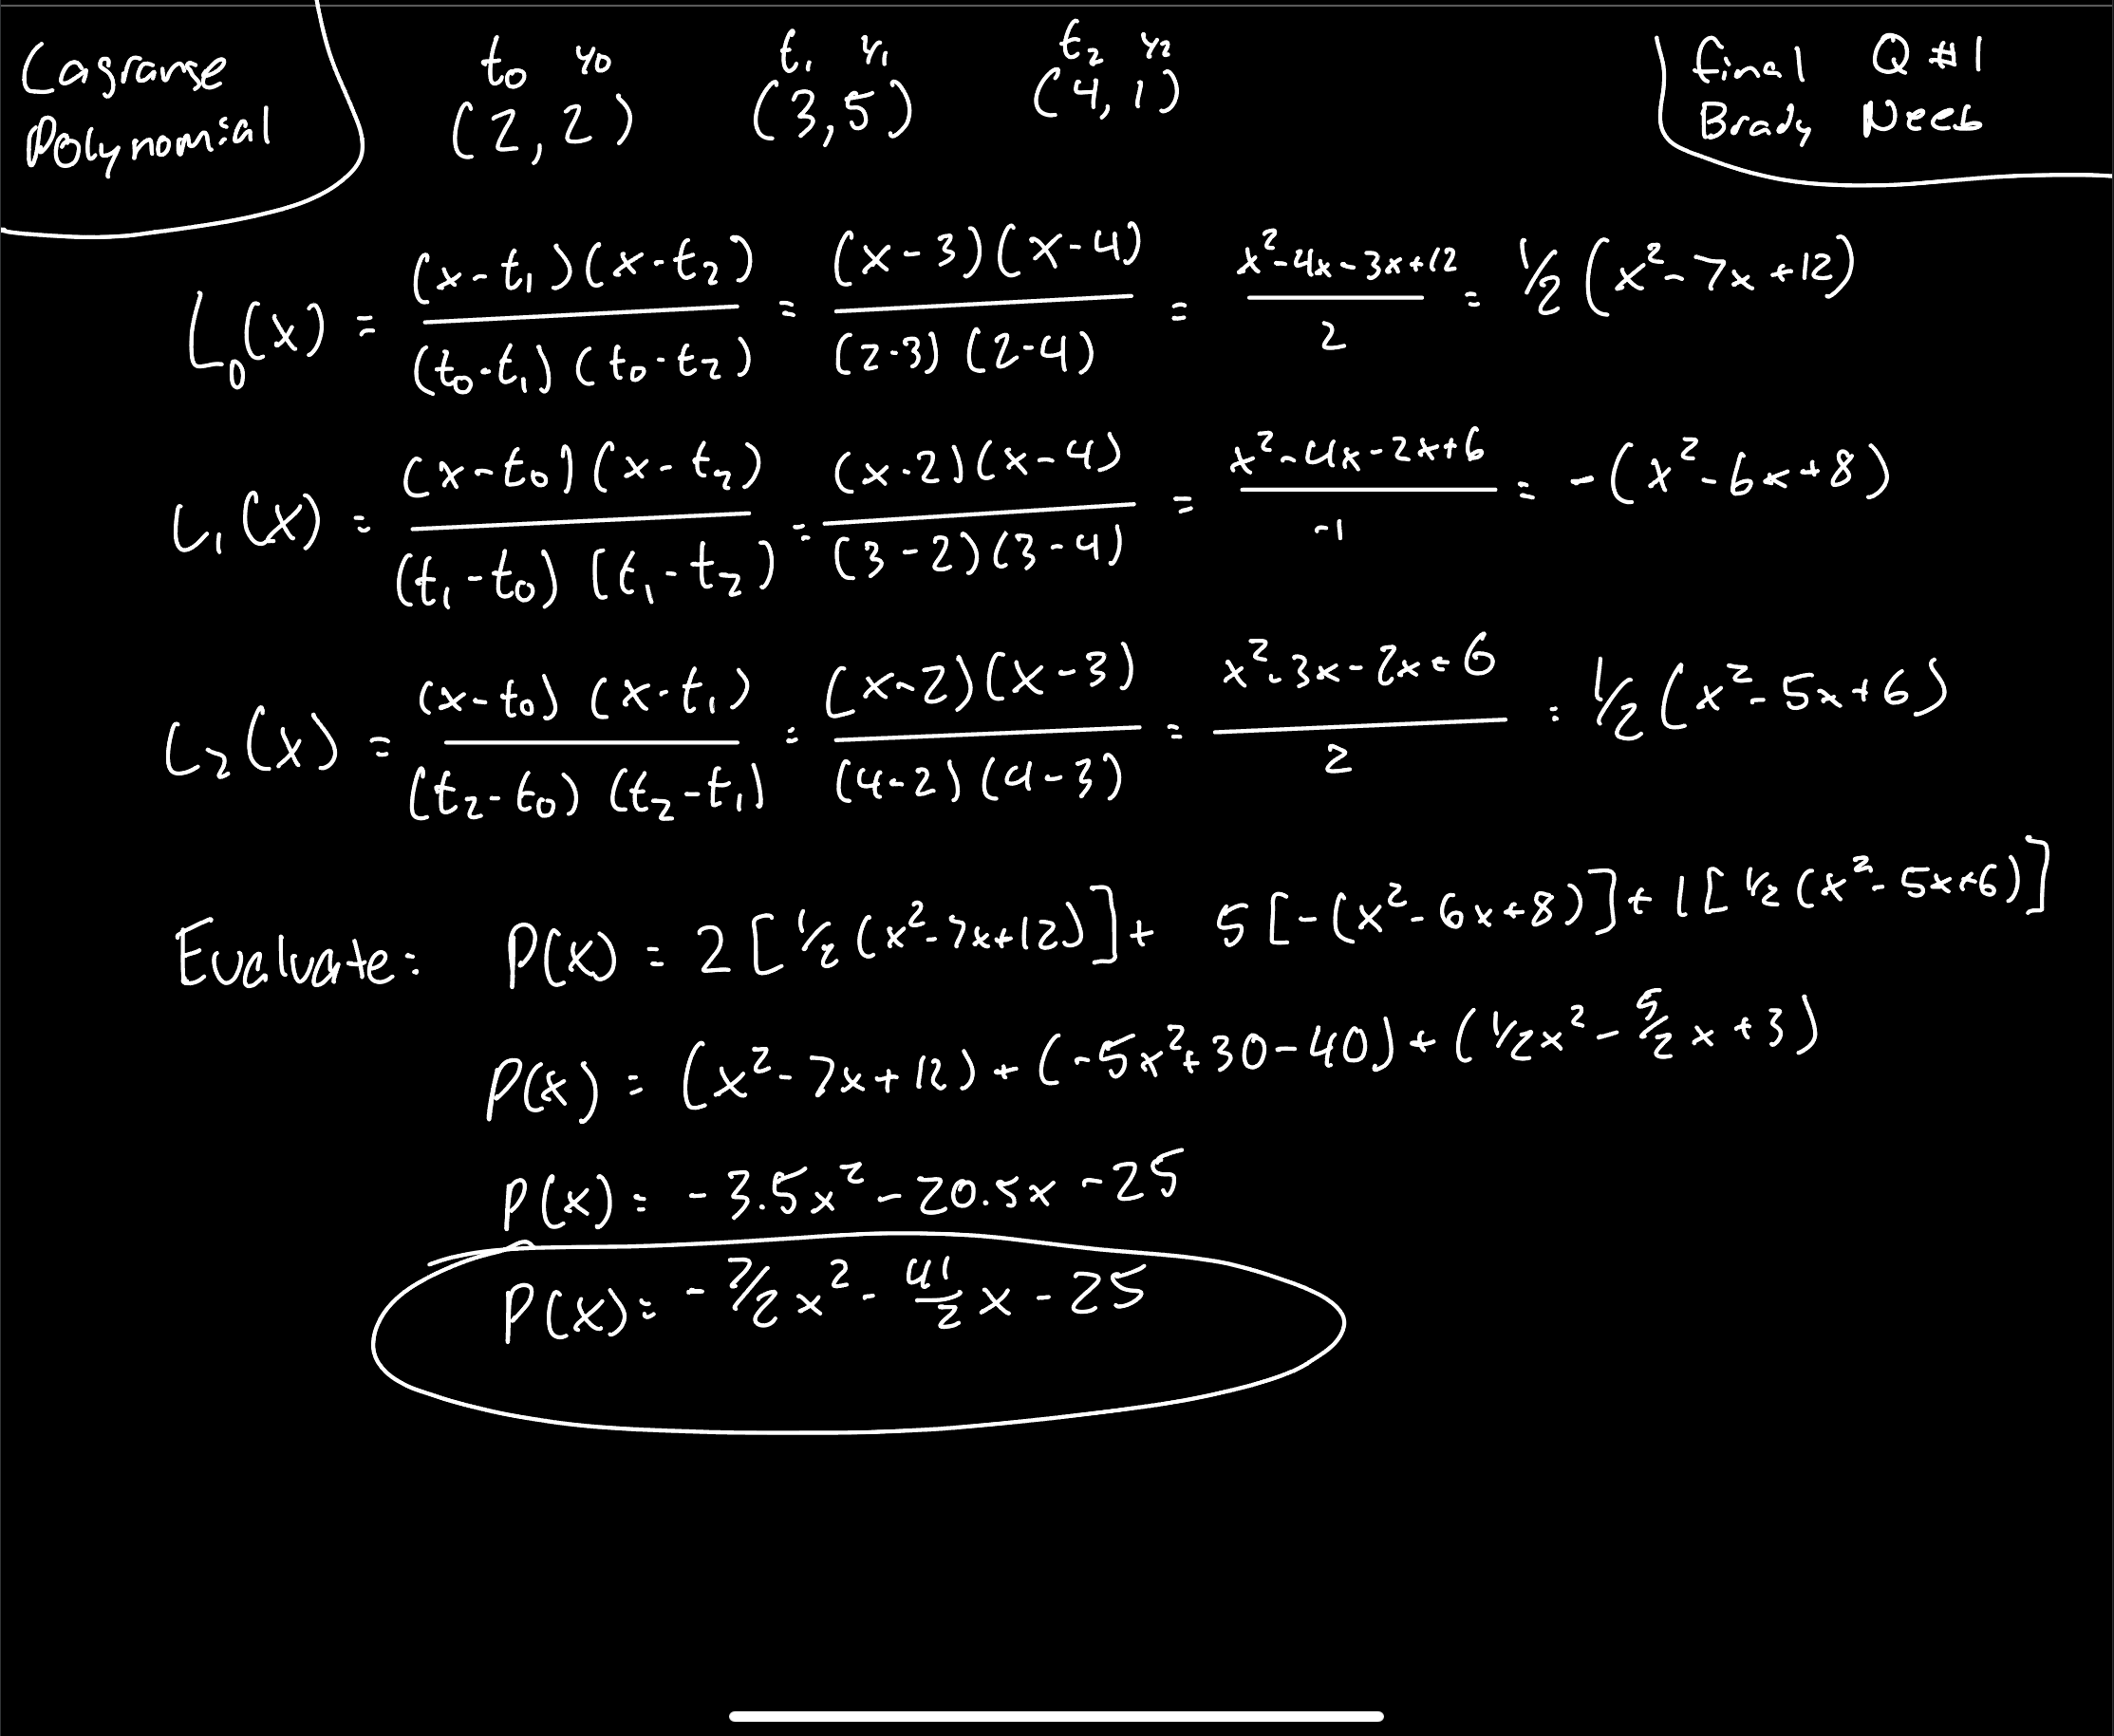 Lagrange Polynomial
t₀ y₀ t₁ y₁ t₂ y₂
(2, 2) (3, 5) (4, 1)
Final Q #1
Brady Neeb
L₀(x) = (x-t₁)(x-t₂) / (t₀-t₁)(t₀-t₂) = (x-3)(x-4) / (2-3)(2-4) = x²-4x-3x+12 / 2 = ½(x²-7x+12)
L₁(x) = (x-t₀)(x-t₂) / (t₁-t₀)(t₁-t₂) = (x-2)(x-4) / (3-2)(3-4) = x²-4x-2x+6 / -1 = -(x²-6x+8)
L₂(x) = (x-t₀)(x-t₁) / (t₂-t₀)(t₂-t₁) = (x-2)(x-3) / (4-2)(4-3) = x²-3x-2x+6 / 2 = ½(x²-5x+6)
Evaluate: P(x) = 2[½(x²-7x+12)] + 5[-(x²-6x+8)] + 1[½(x²-5x+6)]
P(x) = (x²-7x+12) + (-5x²+30-40) + (½x²-5/2x+3)
P(x) = -3.5x²-20.5x-25
P(x) = -7/2x²-41/2x-25